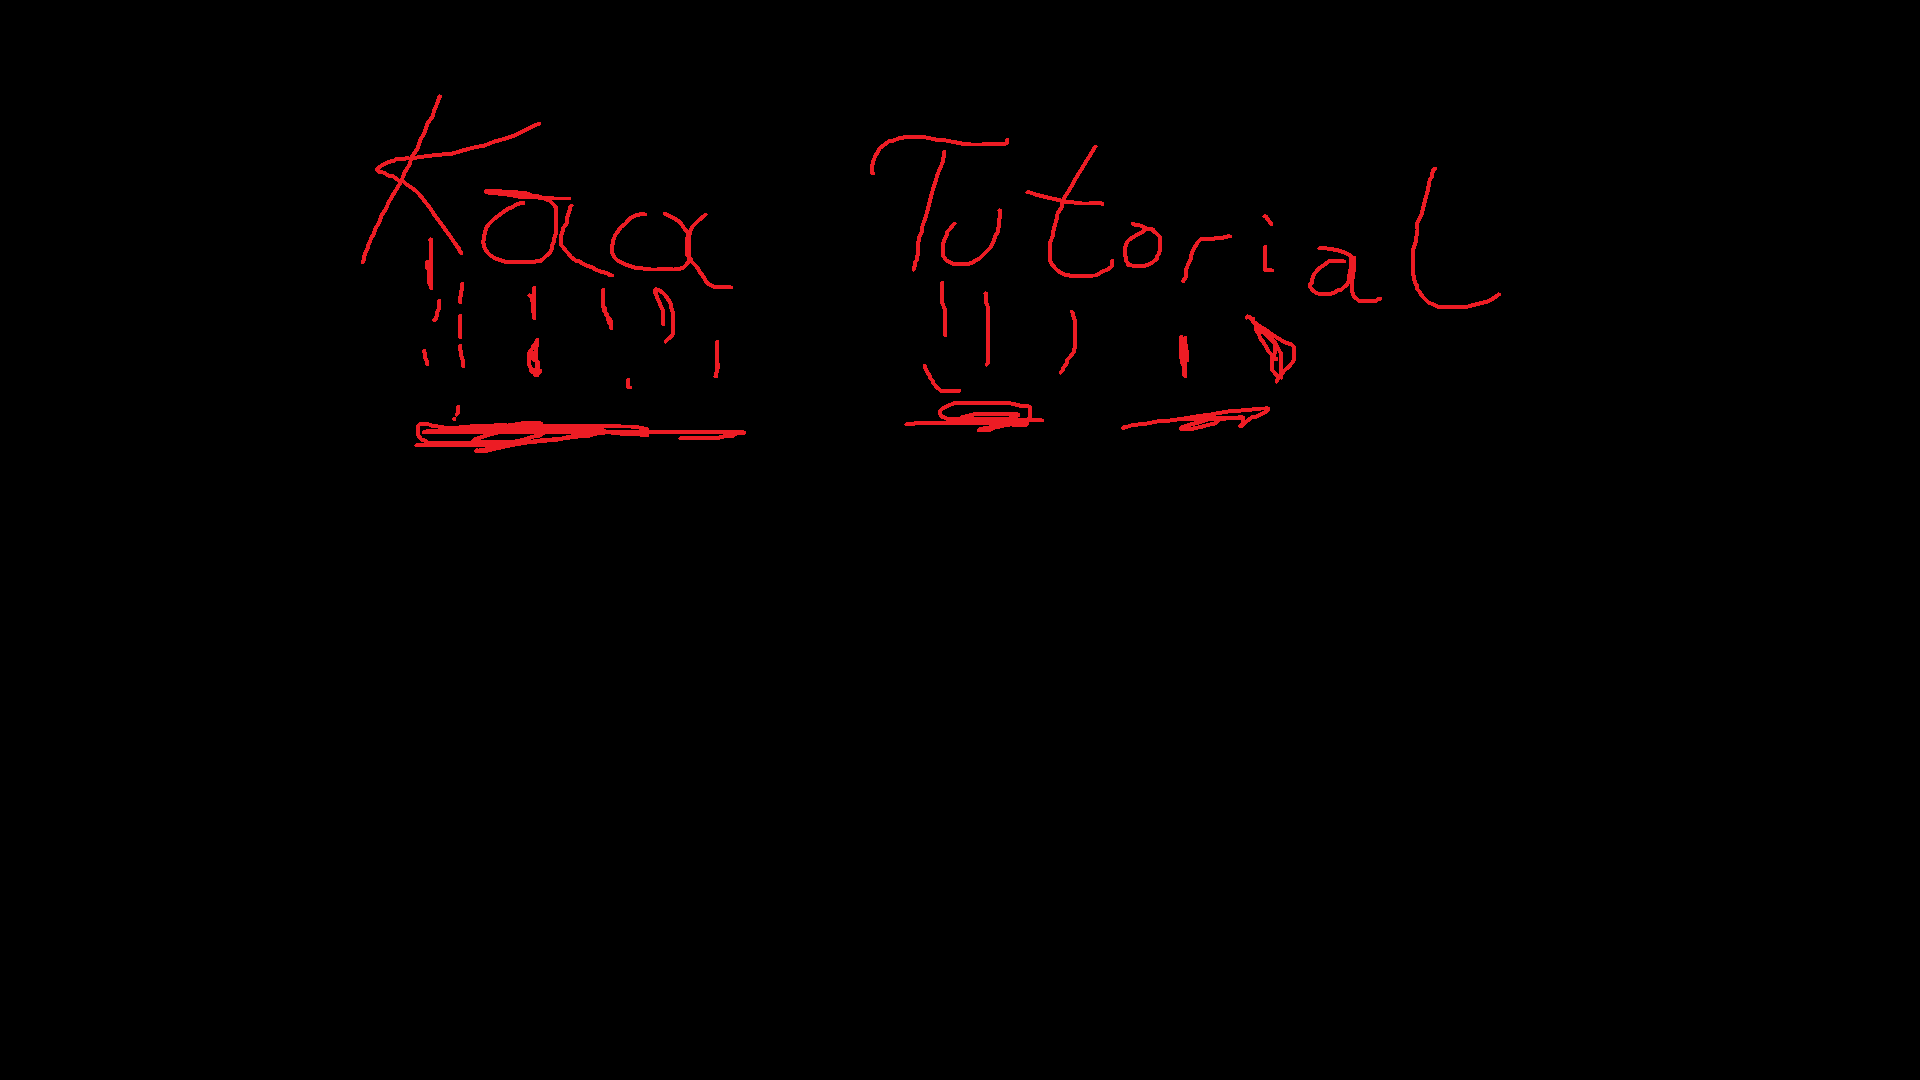 Kaa Tutorial